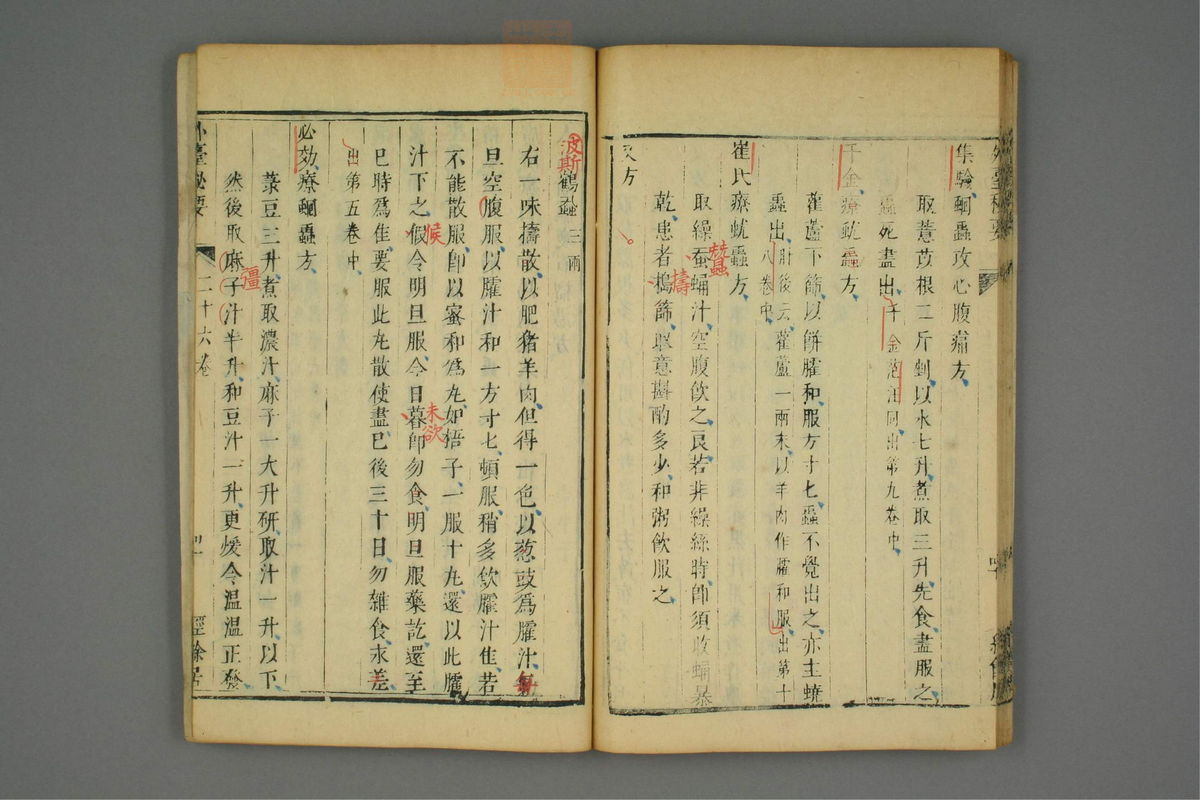 集驗蛔蟲攻心腹痛方
取薏苡根二斤剉以水七升煮取三升先食盡服之
蟲死盡出千金范汪同出第九卷中
千金療蚘蟲方
雚蘆下篩以餅臛和服方寸匕蟲不覺出之亦主蟯
蟲出肘後云雚蘆一兩末以羊肉作臛和服出第十
八卷中
崔氏療蚘蟲方
蠶
取繰蚕蛹汁空腹飲之良若非繰絲時即須收蛹暴
擣
乾患者搗篩取意斟酌多少和粥飲服之
又方
波斯鶴蝨三兩
右一味擣散以肥豬羊肉但得一色以葱豉為臛汁每
旦空腹服以臛汁和一方寸匕頓服稍多飲臛汁佳若
不能散服即以蜜和為丸如梧子一服十丸還以此臛
候
未欲
汁下之假令明旦服今日暮即勿食明旦服藥訖還至
巳時為佳要服此丸散使盡已後三十日勿雜食永差
出第五卷中
必効療蛔蟲方
菉豆三升煮取濃汁麻子一大升研取汁一升以下
殭
然後取麻子汁半升和豆汁一升更煖令温温正發
外臺秘要
二十六卷
經餘居